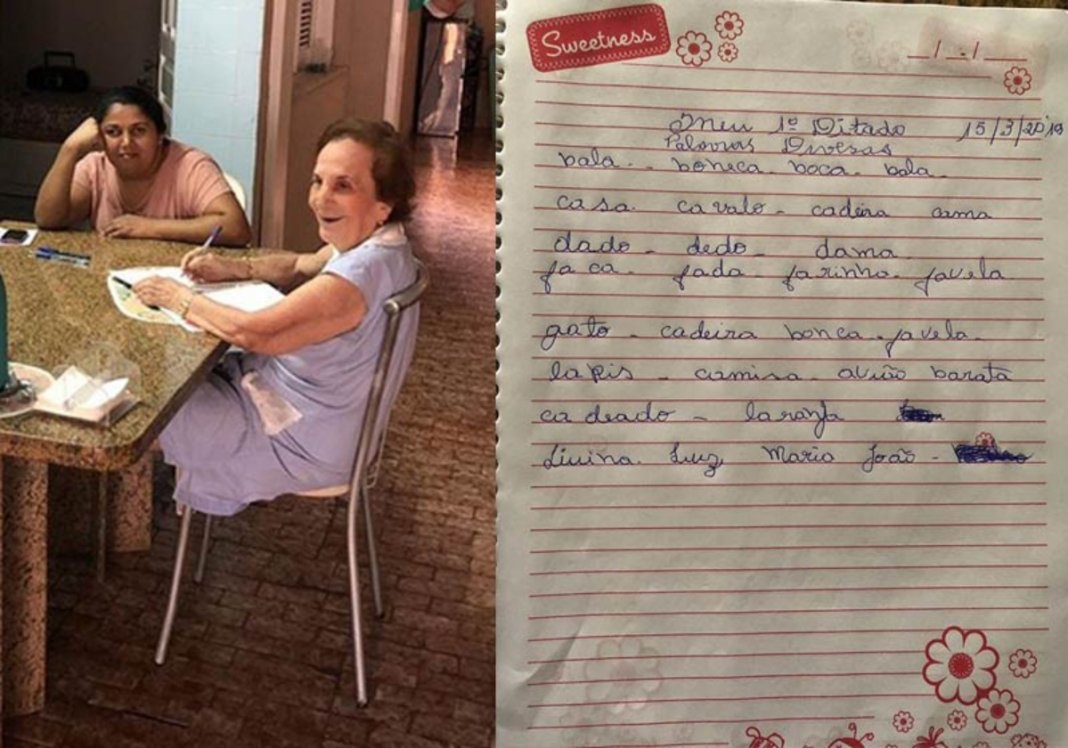 Sweetness
Meu 1º Ditado 15/3/2019
Palavras Diversas
bala - boneca boca - bola -
casa. cavalo - cadeira cama
dado - dedo - dama
faca - fada - farinha - favela
gato - cadeira boneca - favela -
lapis - camisa - avião barata
cadeado - laranja
Divina. Luz Maria João -